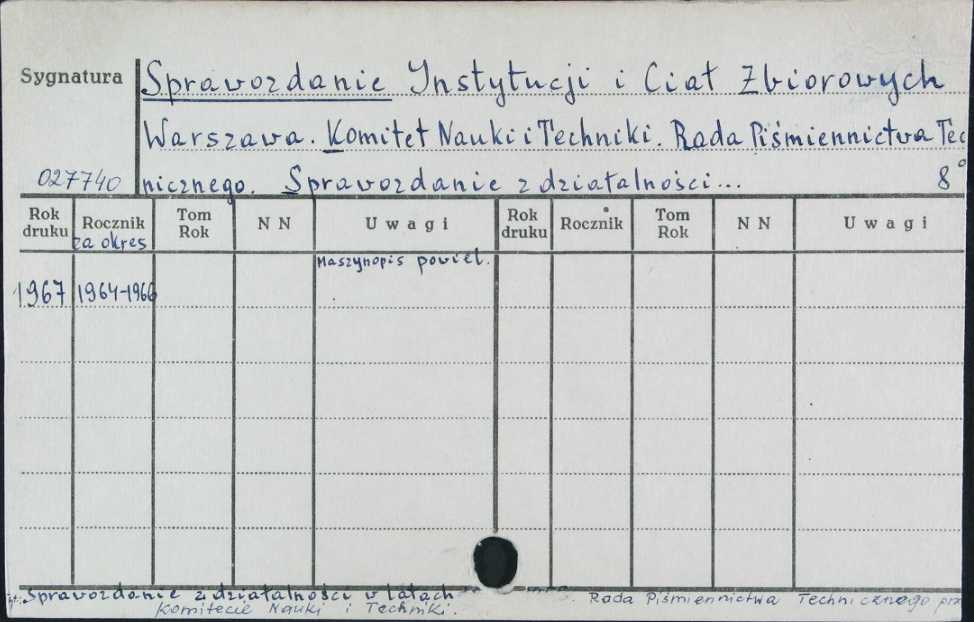 Sygnatura
Sprawozdanie Instytucji i Ciał Zbiorowych
Warszawa. Komitet Nauki i Techniki. Rada Piśmiennictwa Tec
027740 nicznego. Sprawozdanie z działalności... 8°
Rok druku Rocznik Tom Rok N N Uwagi Rok druku Rocznik Tom Rok N N Uwagi
za okres
Maszynopis powiel.
1967 1964-1966
Sprawozdanie z działalności w latach Rada Piśmiennictwa Technicznego prz
Komitecie Nauki i Techniki.